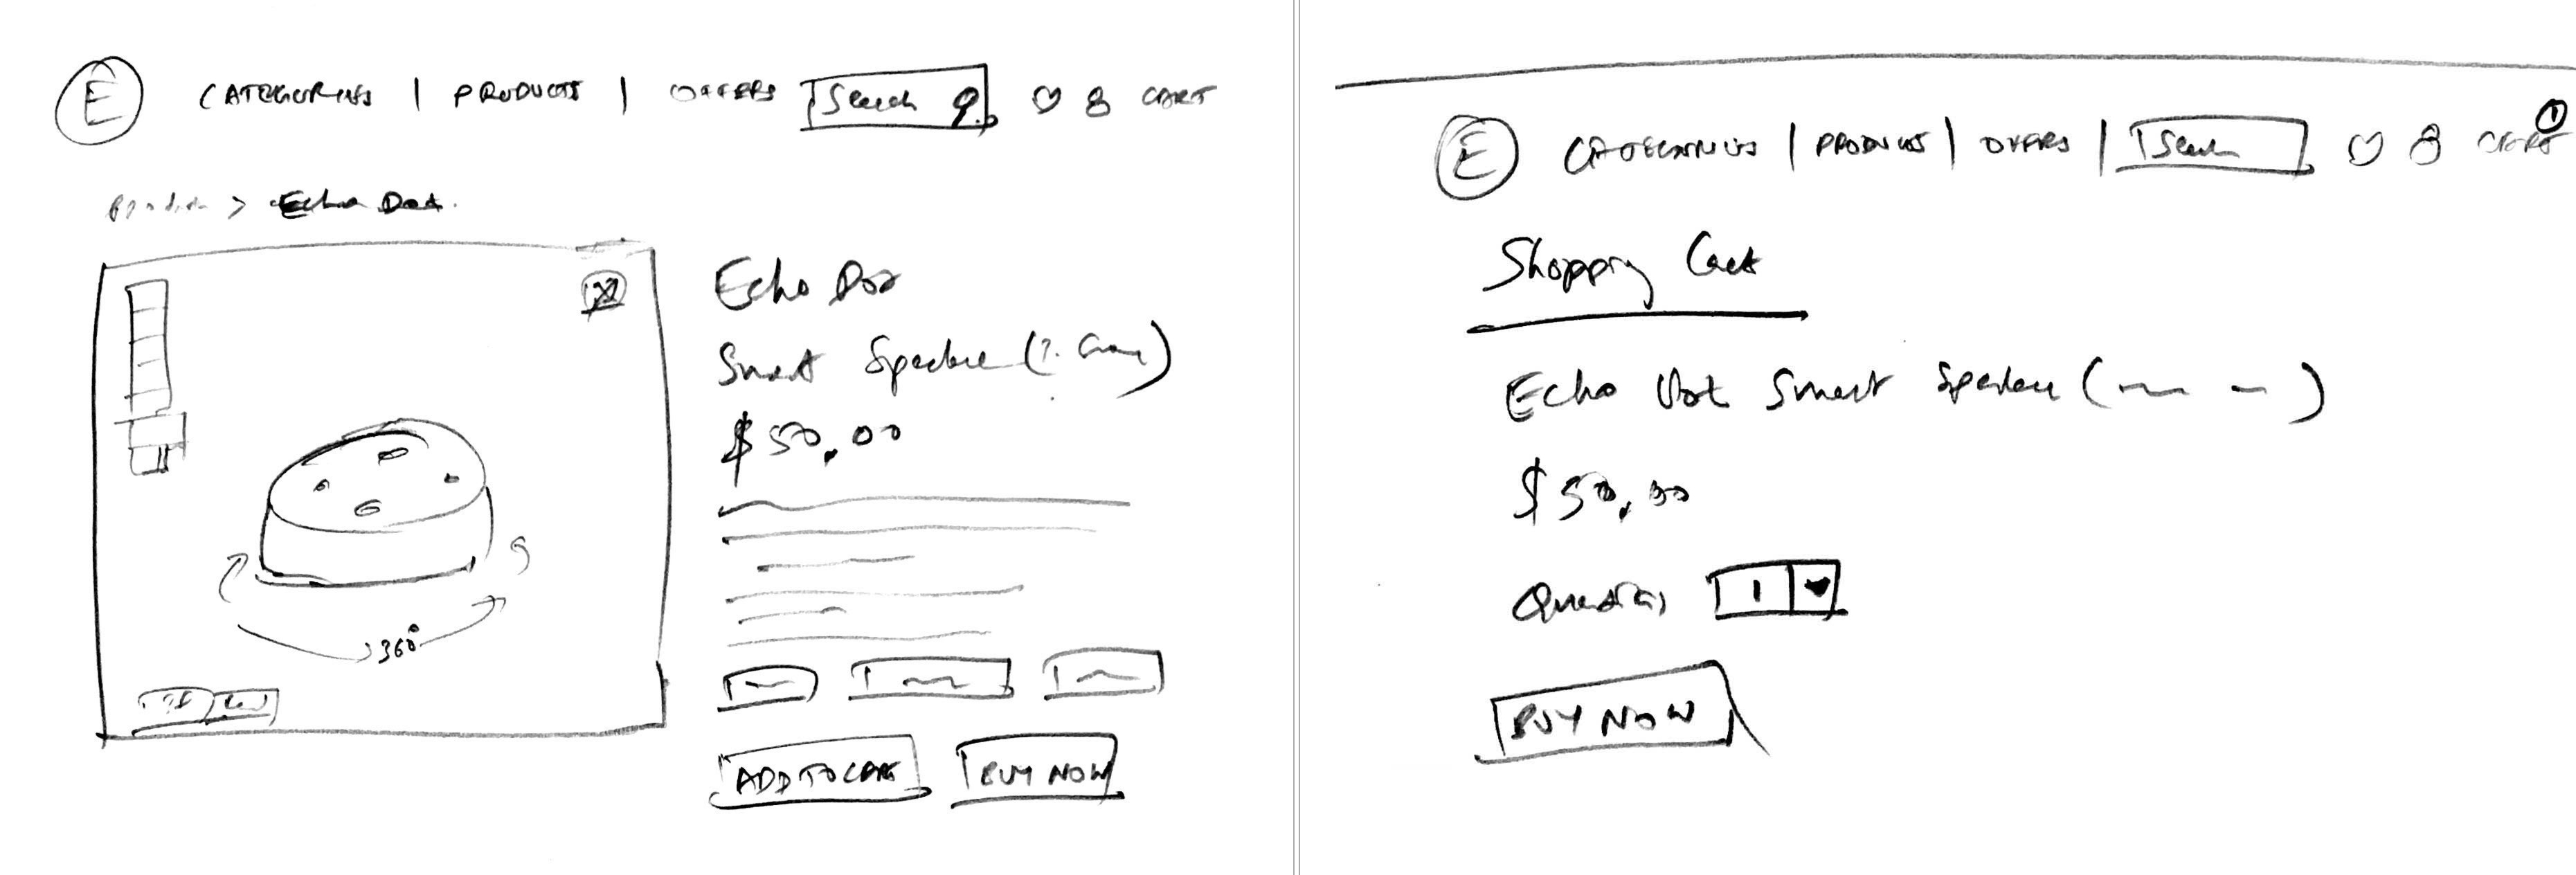 E CATEGORIES | PRODUCTS | OFFERS Search CART
> Echo Dot.
Echo Dot
Smart Speaker (
$50.00
360°
ADD TO CART BUY NOW
E CATEGORIES | PRODUCTS | OFFERS | Search CART 1
Shopping Cart
Echo Dot Smart Speaker ( )
$50.00
Quantity 1
BUY NOW